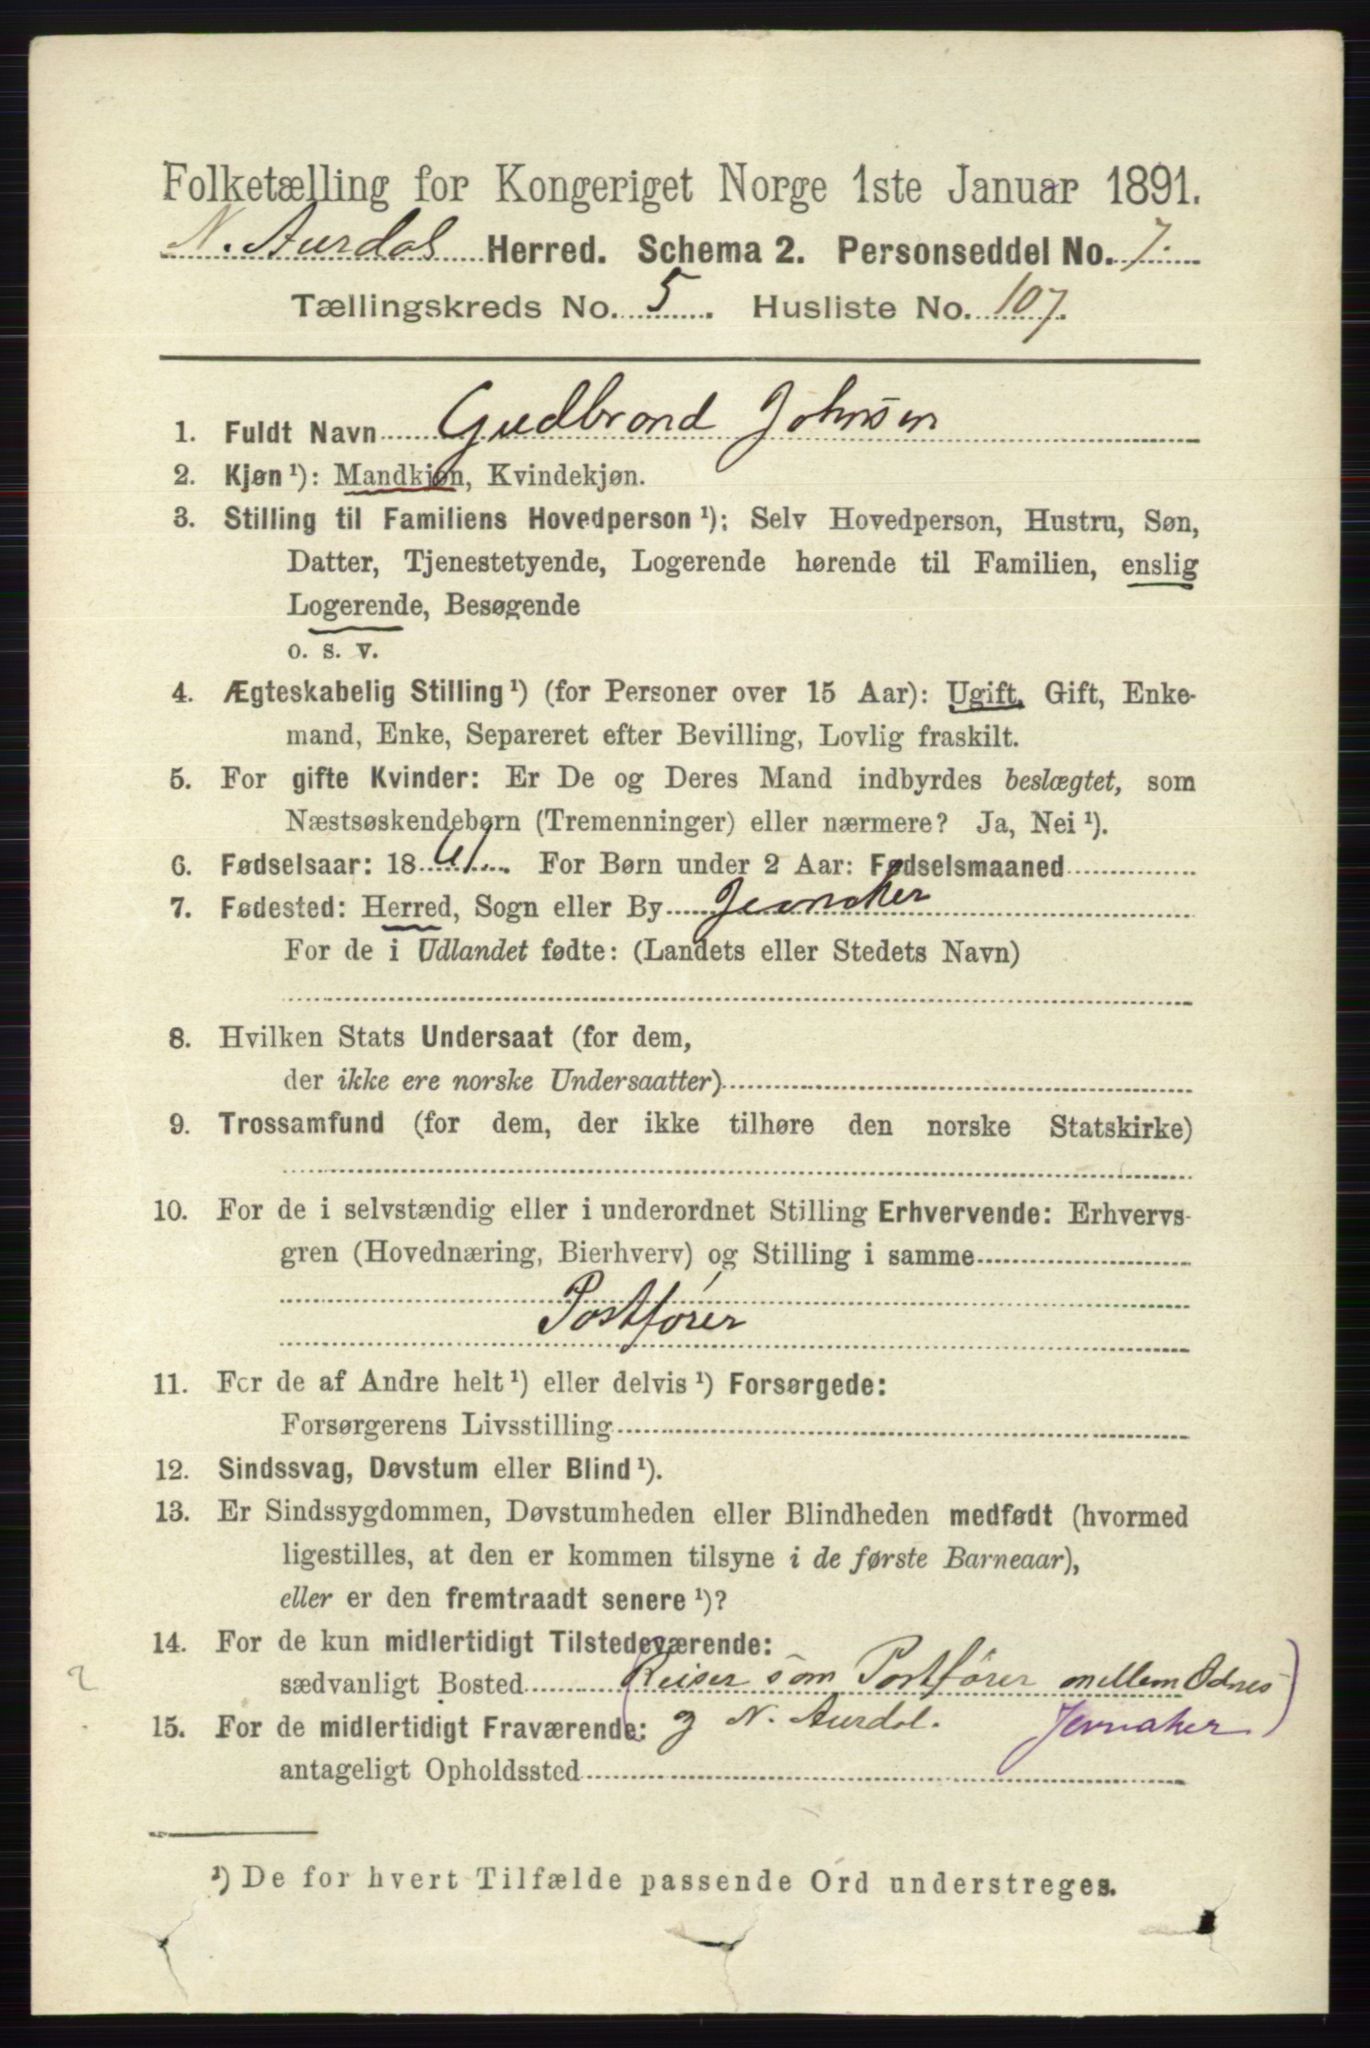 Folketælling for Kongeriget Norge 1ste Januar 1891.
N. Aurdal Herred. Schema 2. Personseddel No. 7.
Tællingskreds No. 5. Husliste No. 107.
1. Fuldt Navn Gudbrand Johnsen
2. Kjøn ¹): Mandkjøn, Kvindekjøn.
3. Stilling til Familiens Hovedperson ¹): Selv Hovedperson, Hustru, Søn,
Datter, Tjenestetyende, Logerende hørende til Familien, enslig
Logerende, Besøgende
o. s. v.
4. Ægteskabelig Stilling ¹) (for Personer over 15 Aar): Ugift, Gift, Enke-
mand, Enke, Separeret efter Bevilling, Lovlig fraskilt.
5. For gifte Kvinder: Er De og Deres Mand indbyrdes beslægtet, som
Næstsøskendebørn (Tremenninger) eller nærmere? Ja, Nei ¹).
6. Fødselsaar: 1861. For Børn under 2 Aar: Fødselsmaaned
7. Fødested: Herred, Sogn eller By Jevnaker
For de i Udlandet fødte: (Landets eller Stedets Navn)
8. Hvilken Stats Undersaat (for dem,
der ikke ere norske Undersaatter)
9. Trossamfund (for dem, der ikke tilhøre den norske Statskirke)
10. For de i selvstændig eller i underordnet Stilling Erhvervende: Erhvervs-
gren (Hovednæring, Bierhverv) og Stilling i samme
Postfører
11. For de af Andre helt ¹) eller delvis ¹) Forsørgede:
Forsørgerens Livsstilling
12. Sindssvag, Døvstum eller Blind ¹).
13. Er Sindssygdommen, Døvstumheden eller Blindheden medfødt (hvormed
ligestilles, at den er kommen tilsyne i de første Barneaar),
eller er den fremtraadt senere ¹)?
14. For de kun midlertidigt Tilstedeværende:
sædvanligt Bosted (Reiser som Postfører mellem Odnes)
15. For de midlertidigt Fraværende: og N. Aurdal. Jevnaker
antageligt Opholdssted
¹) De for hvert Tilfælde passende Ord understreges.